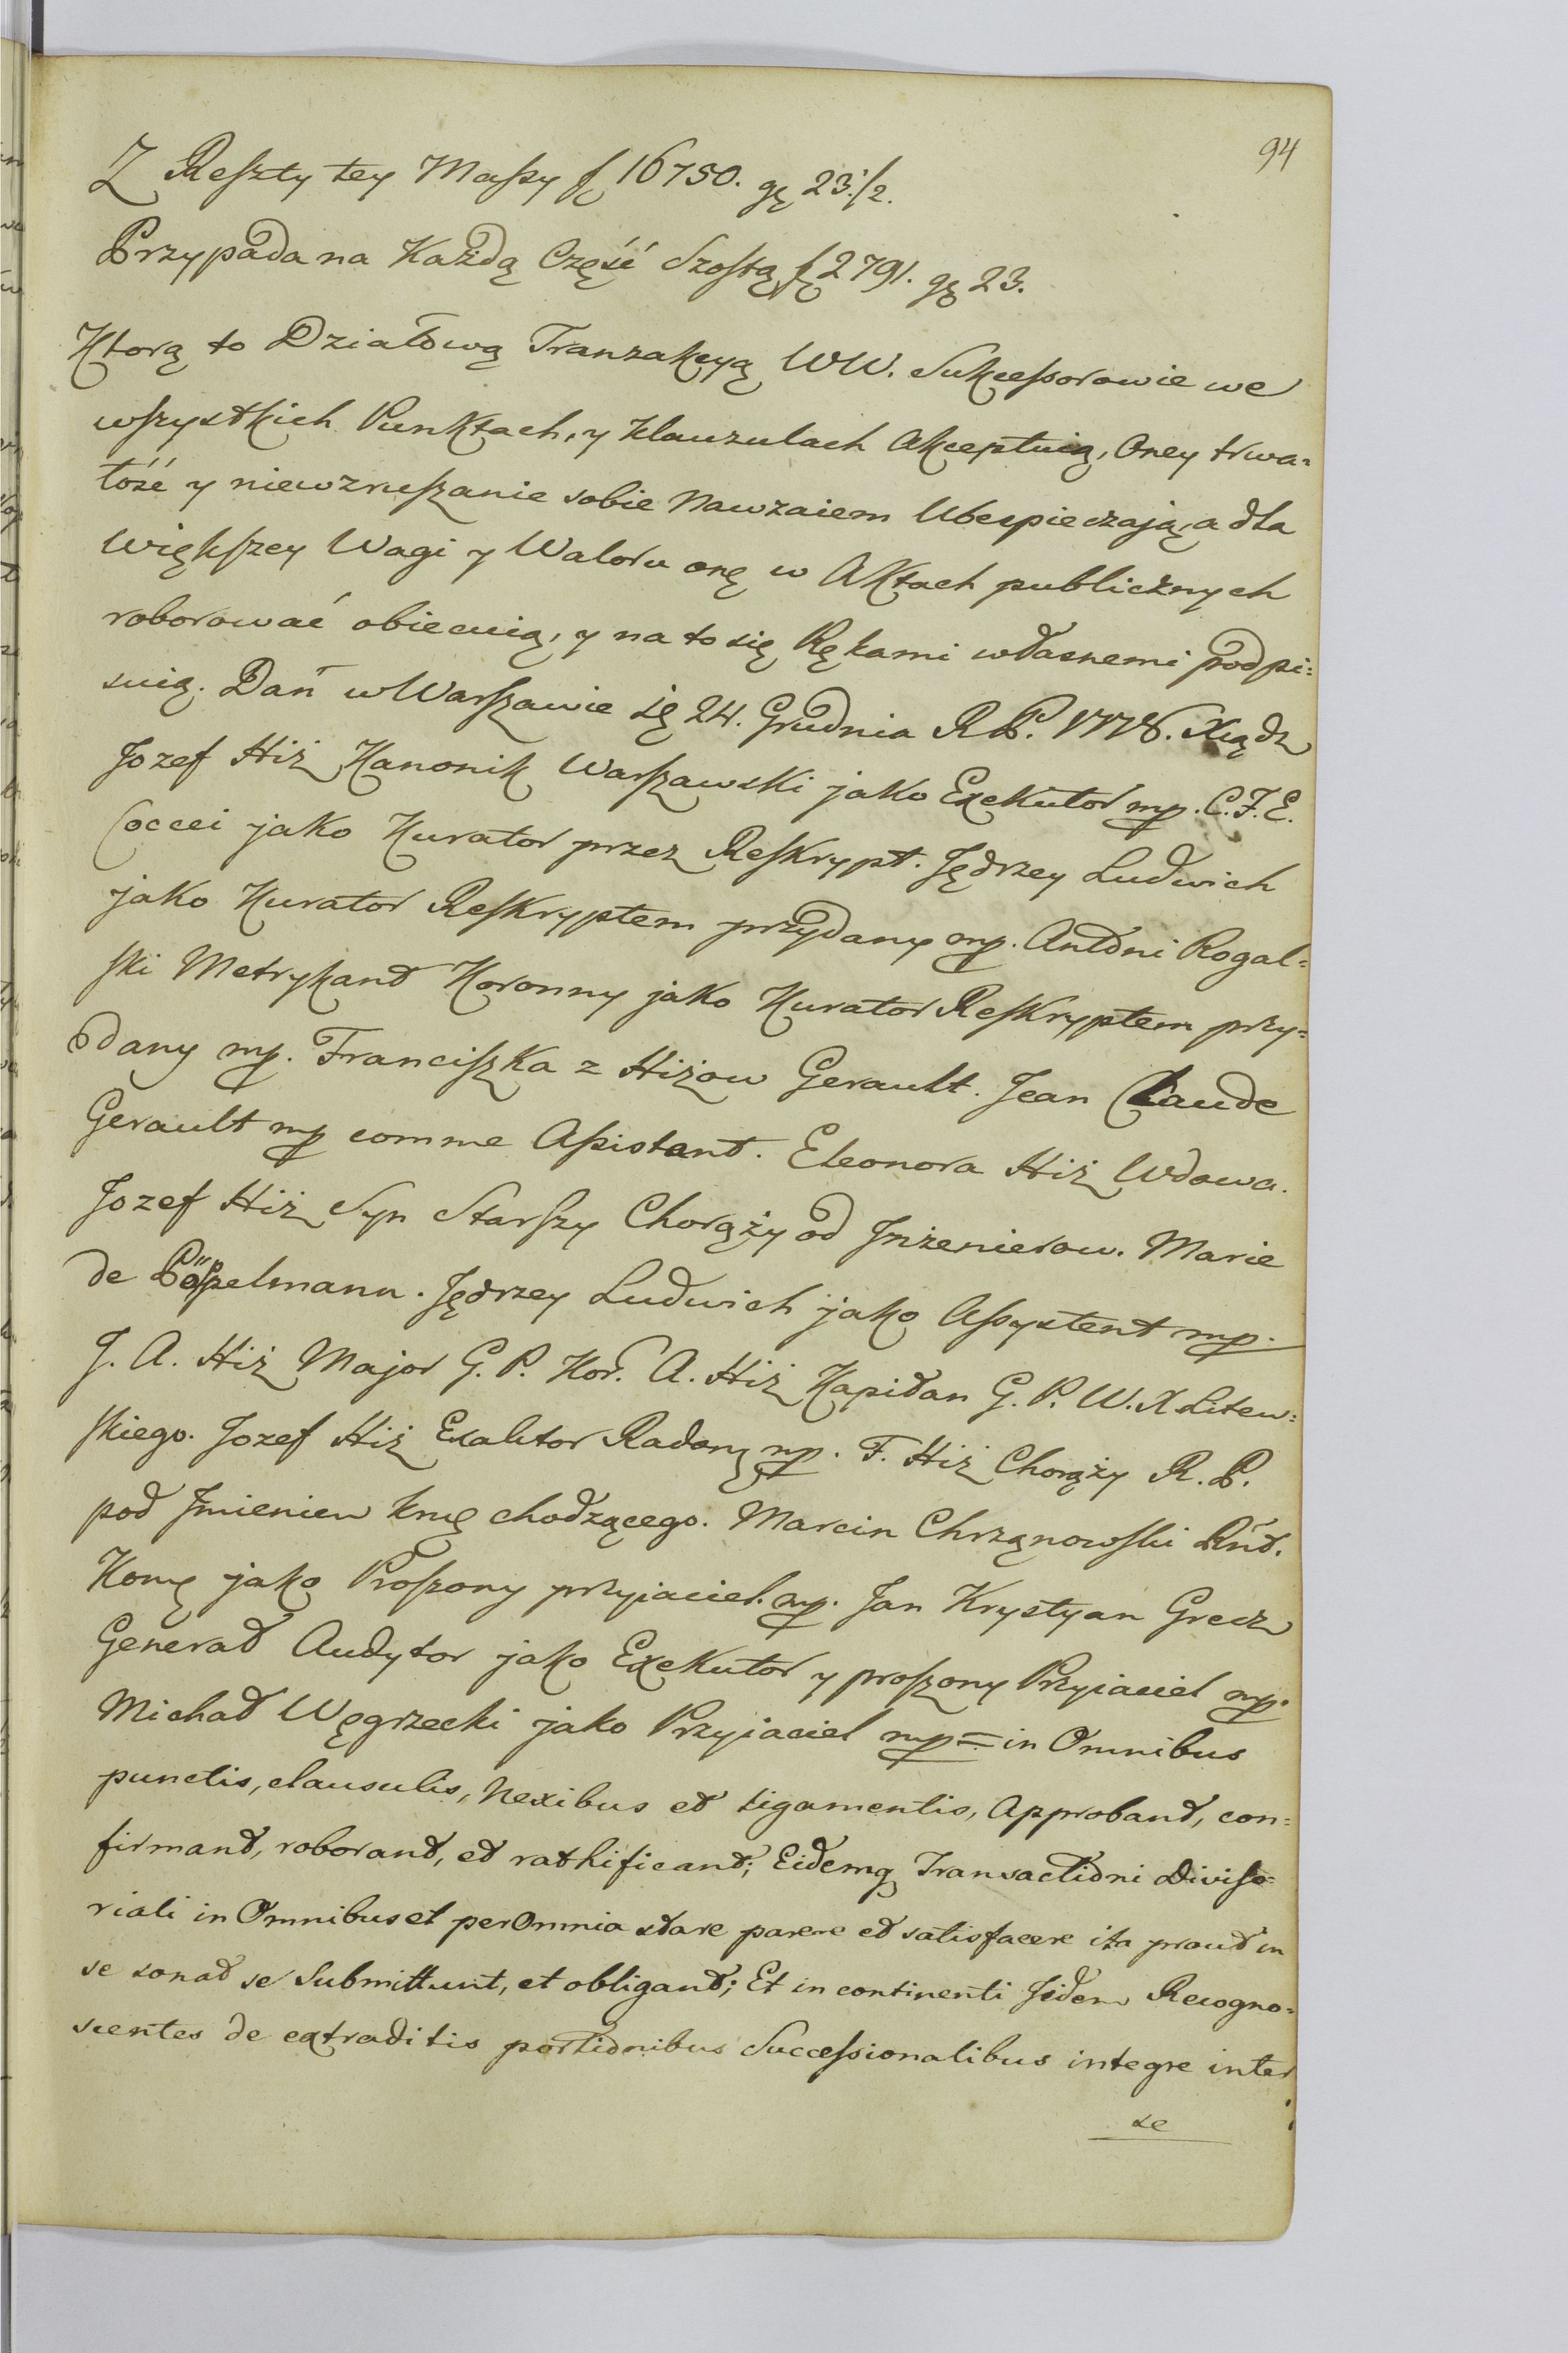 94
Z Reszty tey Massy f 16750. gę 23 1/2.
Przypada na Każdą Część Szostą fę 2791. gę 23.
Ktorą to Działową Tranzakcyą WW. Sukcessorowie we
wszystkich Punktach, y Klauzulach Akceptuią, Oney trwa=
łość y niewzruszanie sobie Nawzaiem Ubespieczają, a dla
Większey Wagi y Waloru onę w Aktach publicznych
roborować obiecuią, y na to się Rękami własnemi podpi=
suią. Dań w Warszawie 24. Grudnia R. P. 1778. Xiądz
Jozef Hiż Kanonik Warszawski jako Exekutor mp. C. F. E.
Coccei jako Kurator przez Reskrypt. Jędrzey Ludwich
jako Kurator Reskryptem przydany mp. Antoni Rogal=
ski Metrykant Koronny jako Kurator Reskryptem przy=
dany mp. Franciszka z Hiżow Gerault. Jean Claude
Gerault mp comme Assistant. Eleonora Hiż Wdowa.
Jozef Hiż Syn Starszy Chorąży od Jnżenierow. Marie
de Pöppelmann. Jędrzey Ludwich jako Assystent mp.
J. A. Hiż Major G. P. Kor. A. Hiż Kapitan G. P. W. X Litew=
skiego. Jozef Hiż Exaktor Radomę mp. F. Hiż Chorąży R. P.
pod Jmieniem Krulę chodzącego. Marcin Chrzanowski
Konę jako Proszony przyiaciel. mp. Jan Krystyan Grecz
Generał Audytor jako Exekutor y proszony Przyiaciel mp.
Michał Węgrzecki jako Przyjaciel mp = in Omnibus
punctis, clausulis, Nexibus et ligamentis, Approbant, con=
firmant, roborant, et rathificant; Eidemq Transactioni Diviso=
riali in Omnibus et per Omnia stare parere et satisfacere ita prout in
se sonat se Submittunt, et obligant; Et in continenti Jidem Recogno=
scentes de extraditis portionibus Successionalibus integre inter
se